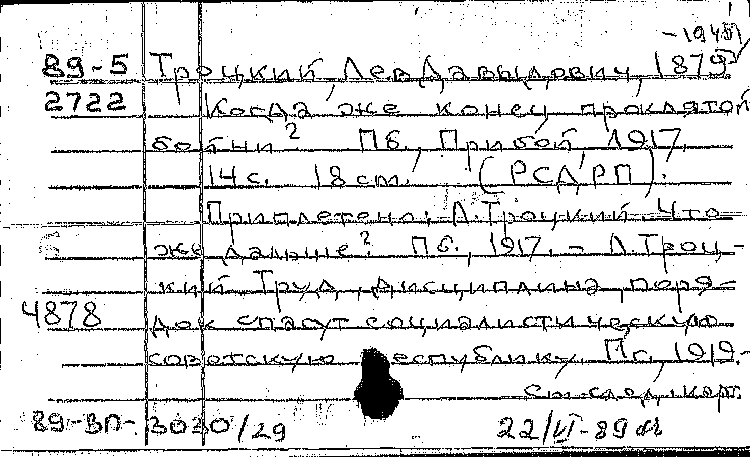 -1940
89-5 Троцкий, Лев Давыдович, 1879
2722 Когда же конец проклятой
бойни? Пб., Прибой, 1917.
14 с. 18 cm. (РСДРП).
Приплетено: Л. Троцкий Что
же дальше? Пб., 1917. - Л. Троц-
кий. Труд, дисциплина, поря-
4878 док спасут социалистическую
советскую республику. Пг., 1919.-
См. след. карт.
89-ВП-3030/29 22/VI-89